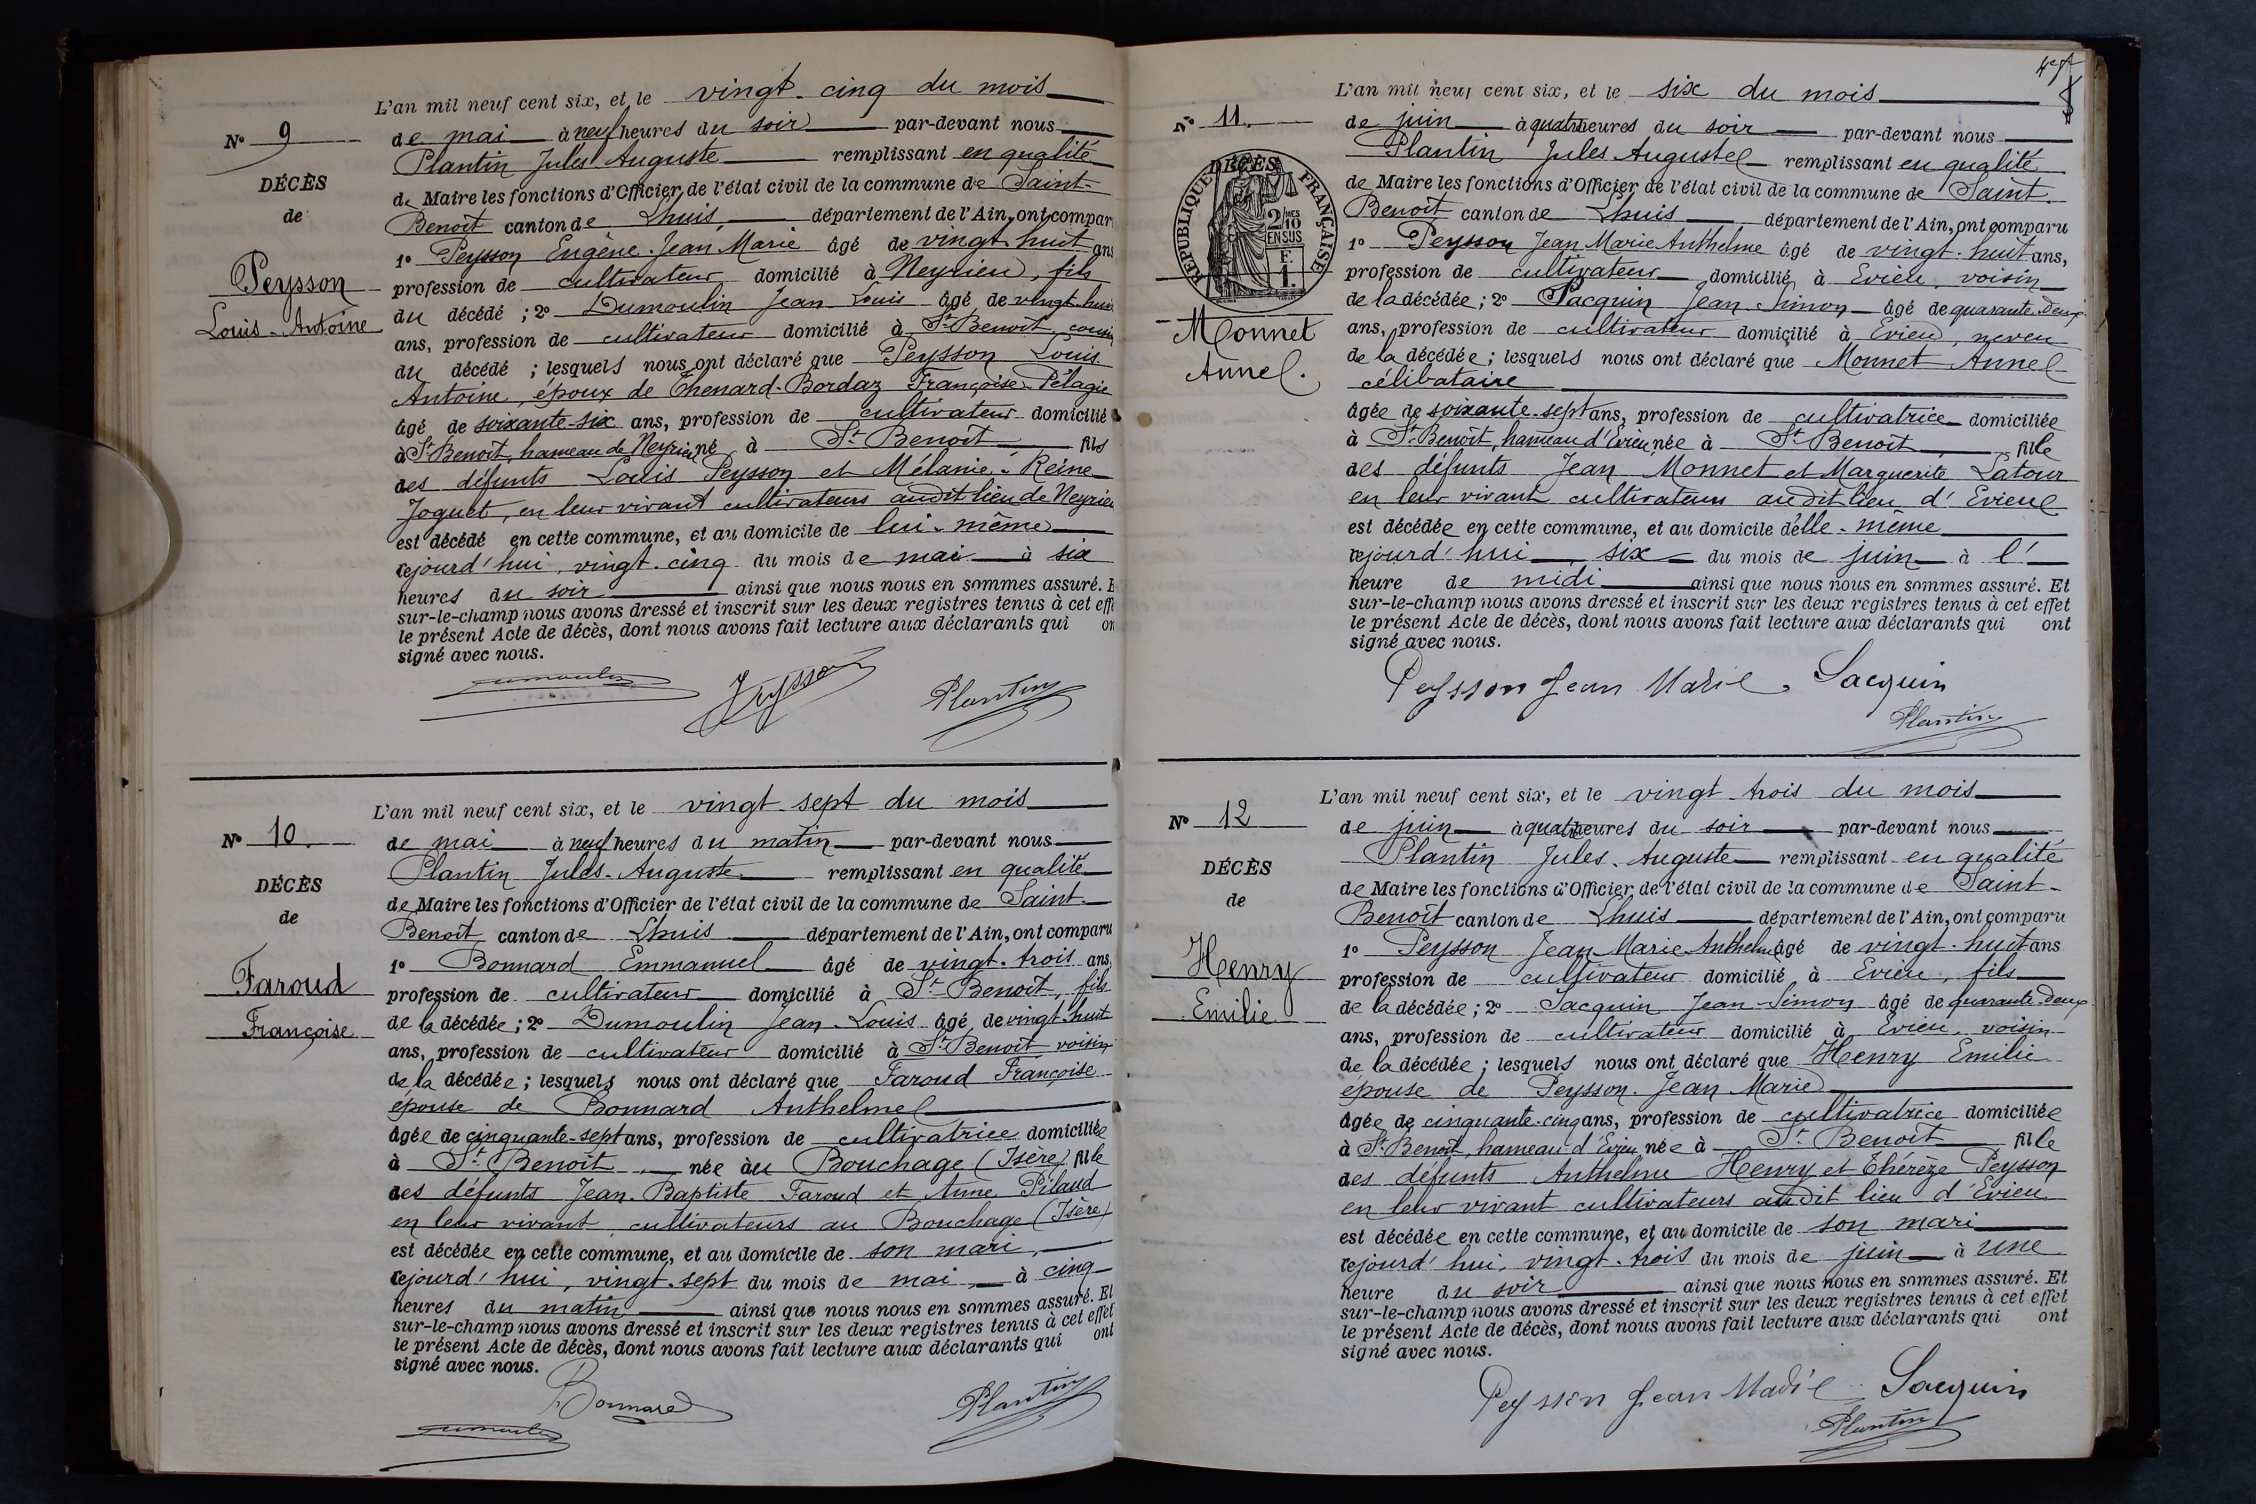 L'an mil neuf cent six, et le vingt-cinq du mois
N° 9
de mai à neuf heures du soir par-devant nous
Plantin Jules Auguste remplissant en qualité
DÉCÈS
de Maire les fonctions d'Officier de l'état civil de la commune de Saint-
de
Benoît canton de Lhuis département de l'Ain, ont compar
1° Peysson Eugène Jean Marie âgé de vingt huit ans
Peysson
profession de cultivateur domicilié à Neyrieu, fils
Louis-Antoine
du décédé ; 2° Dumoulin Jean Louis âgé de vingt huit
ans, profession de cultivateur domicilié à St Benoît, cousin
du décédé ; lesquels nous ont déclaré que Peysson Louis
Antoine, époux de Thenard-Bordaz Françoise-Pélagie
âgé de soixante-six ans, profession de cultivateur domicilié
à St Benoît, hameau de Neyrieu né à St Benoît fils
des défunts Louis Peysson et Mélanie-Reine
Joguet, en leur vivant cultivateurs audit lieu de Neyrieu
est décédé en cette commune, et au domicile de lui-même
cejourd'hui, vingt-cinq du mois de mai à six
heures du soir ainsi que nous nous en sommes assuré. E
sur-le-champ nous avons dressé et inscrit sur les deux registres tenus à cet effe
le présent Acte de décès, dont nous avons fait lecture aux déclarants qui on
signé avec nous.
Dumoulin Peysson Plantin
L'an mil neuf cent six, et le vingt-sept du mois
N° 10.
de mai à neuf heures du matin par-devant nous
Plantin Jules-Auguste remplissant en qualité
DÉCÈS
de Maire les fonctions d'Officier de l'état civil de la commune de Saint-
de
Benoît canton de Lhuis département de l'Ain, ont comparu
1° Bonnard Emmanuel âgé de vingt-trois ans,
Faroud
profession de cultivateur domicilié à St Benoît, fils
Françoise
de la décédée ; 2° Dumoulin Jean-Louis âgé de vingt-huit
ans, profession de cultivateur domicilié à St Benoît voisin
de la décédée ; lesquels nous ont déclaré que Faroud Françoise
épouse de Bonnard Anthelme
âgée de cinquante-sept ans, profession de cultivatrice domiciliée
à St Benoît née au Bouchage (Isère) fille
des défunts Jean-Baptiste Faroud et Anne Pilaud
en leur vivant cultivateurs au Bouchage (Isère)
est décédée en cette commune, et au domicile de son mari,
cejourd'hui, vingt-sept du mois de mai à cinq
heures du matin ainsi que nous nous en sommes assuré. Et
sur-le-champ nous avons dressé et inscrit sur les deux registres tenus à cet effet
le présent Acte de décès, dont nous avons fait lecture aux déclarants qui ont
signé avec nous.
Bonnard Plantin
Dumoulin
L'an mil neuf cent six, et le six du mois
N° 11.
de juin à quatre heures du soir par-devant nous
Plantin Jules Auguste remplissant en qualité
DÉCÈS
RÉPUBLIQUE FRANÇAISE
2/10 MES
EN SUS
F.
1.
de Maire les fonctions d'Officier de l'état civil de la commune de Saint-
Benoît canton de Lhuis département de l'Ain, ont comparu
1° Peysson Jean Marie Anthelme âgé de vingt-huit ans,
profession de cultivateur domicilié à Evieu, voisin
de la décédée ; 2° Jacquin Jean-Simon âgé de quarante-deux
Monnet
ans, profession de cultivateur domicilié à Evieu, neveu
Anne.
de la décédée ; lesquels nous ont déclaré que Monnet Anne
célibataire
âgée de soixante-sept ans, profession de cultivatrice domiciliée
à St Benoît, hameau d'Evieu née à St Benoît fille
des défunts Jean Monnet et Marguerite Latour
en leur vivant cultivateurs audit lieu d'Evieu
est décédée en cette commune, et au domicile d'elle-même
cejourd'hui six du mois de juin à l'
heure de midi ainsi que nous nous en sommes assuré. Et
sur-le-champ nous avons dressé et inscrit sur les deux registres tenus à cet effet
le présent Acte de décès, dont nous avons fait lecture aux déclarants qui ont
signé avec nous.
Peysson Jean Marie Jacquin
Plantin
L'an mil neuf cent six, et le vingt-trois du mois
N° 12
de juin à quatre heures du soir par-devant nous
Plantin Jules-Auguste remplissant en qualité
DÉCÈS
de Maire les fonctions d'Officier de l'état civil de la commune de Saint-
de
Benoît canton de Lhuis département de l'Ain, ont comparu
1° Peysson Jean Marie Anthelme âgé de vingt-huit ans
Henry
profession de cultivateur domicilié à Evieu, fils
Emilie
de la décédée ; 2° Jacquin Jean-Simon âgé de quarante-deux
ans, profession de cultivateur domicilié à Evieu, voisin
de la décédée ; lesquels nous ont déclaré que Henry Emilie
épouse de Peysson Jean Marie
âgée de cinquante-cinq ans, profession de cultivatrice domiciliée
à St Benoît, hameau d'Evieu née à St Benoît fille
des défunts Anthelme Henry et Thérèze Peysson
en leur vivant cultivateurs audit lieu d'Evieu
est décédée en cette commune, et au domicile de son mari
cejourd'hui, vingt-trois du mois de juin à une
heure du soir ainsi que nous nous en sommes assuré. Et
sur-le-champ nous avons dressé et inscrit sur les deux registres tenus à cet effet
le présent Acte de décès, dont nous avons fait lecture aux déclarants qui ont
signé avec nous.
Peysson Jean Marie Jacquin
Plantin